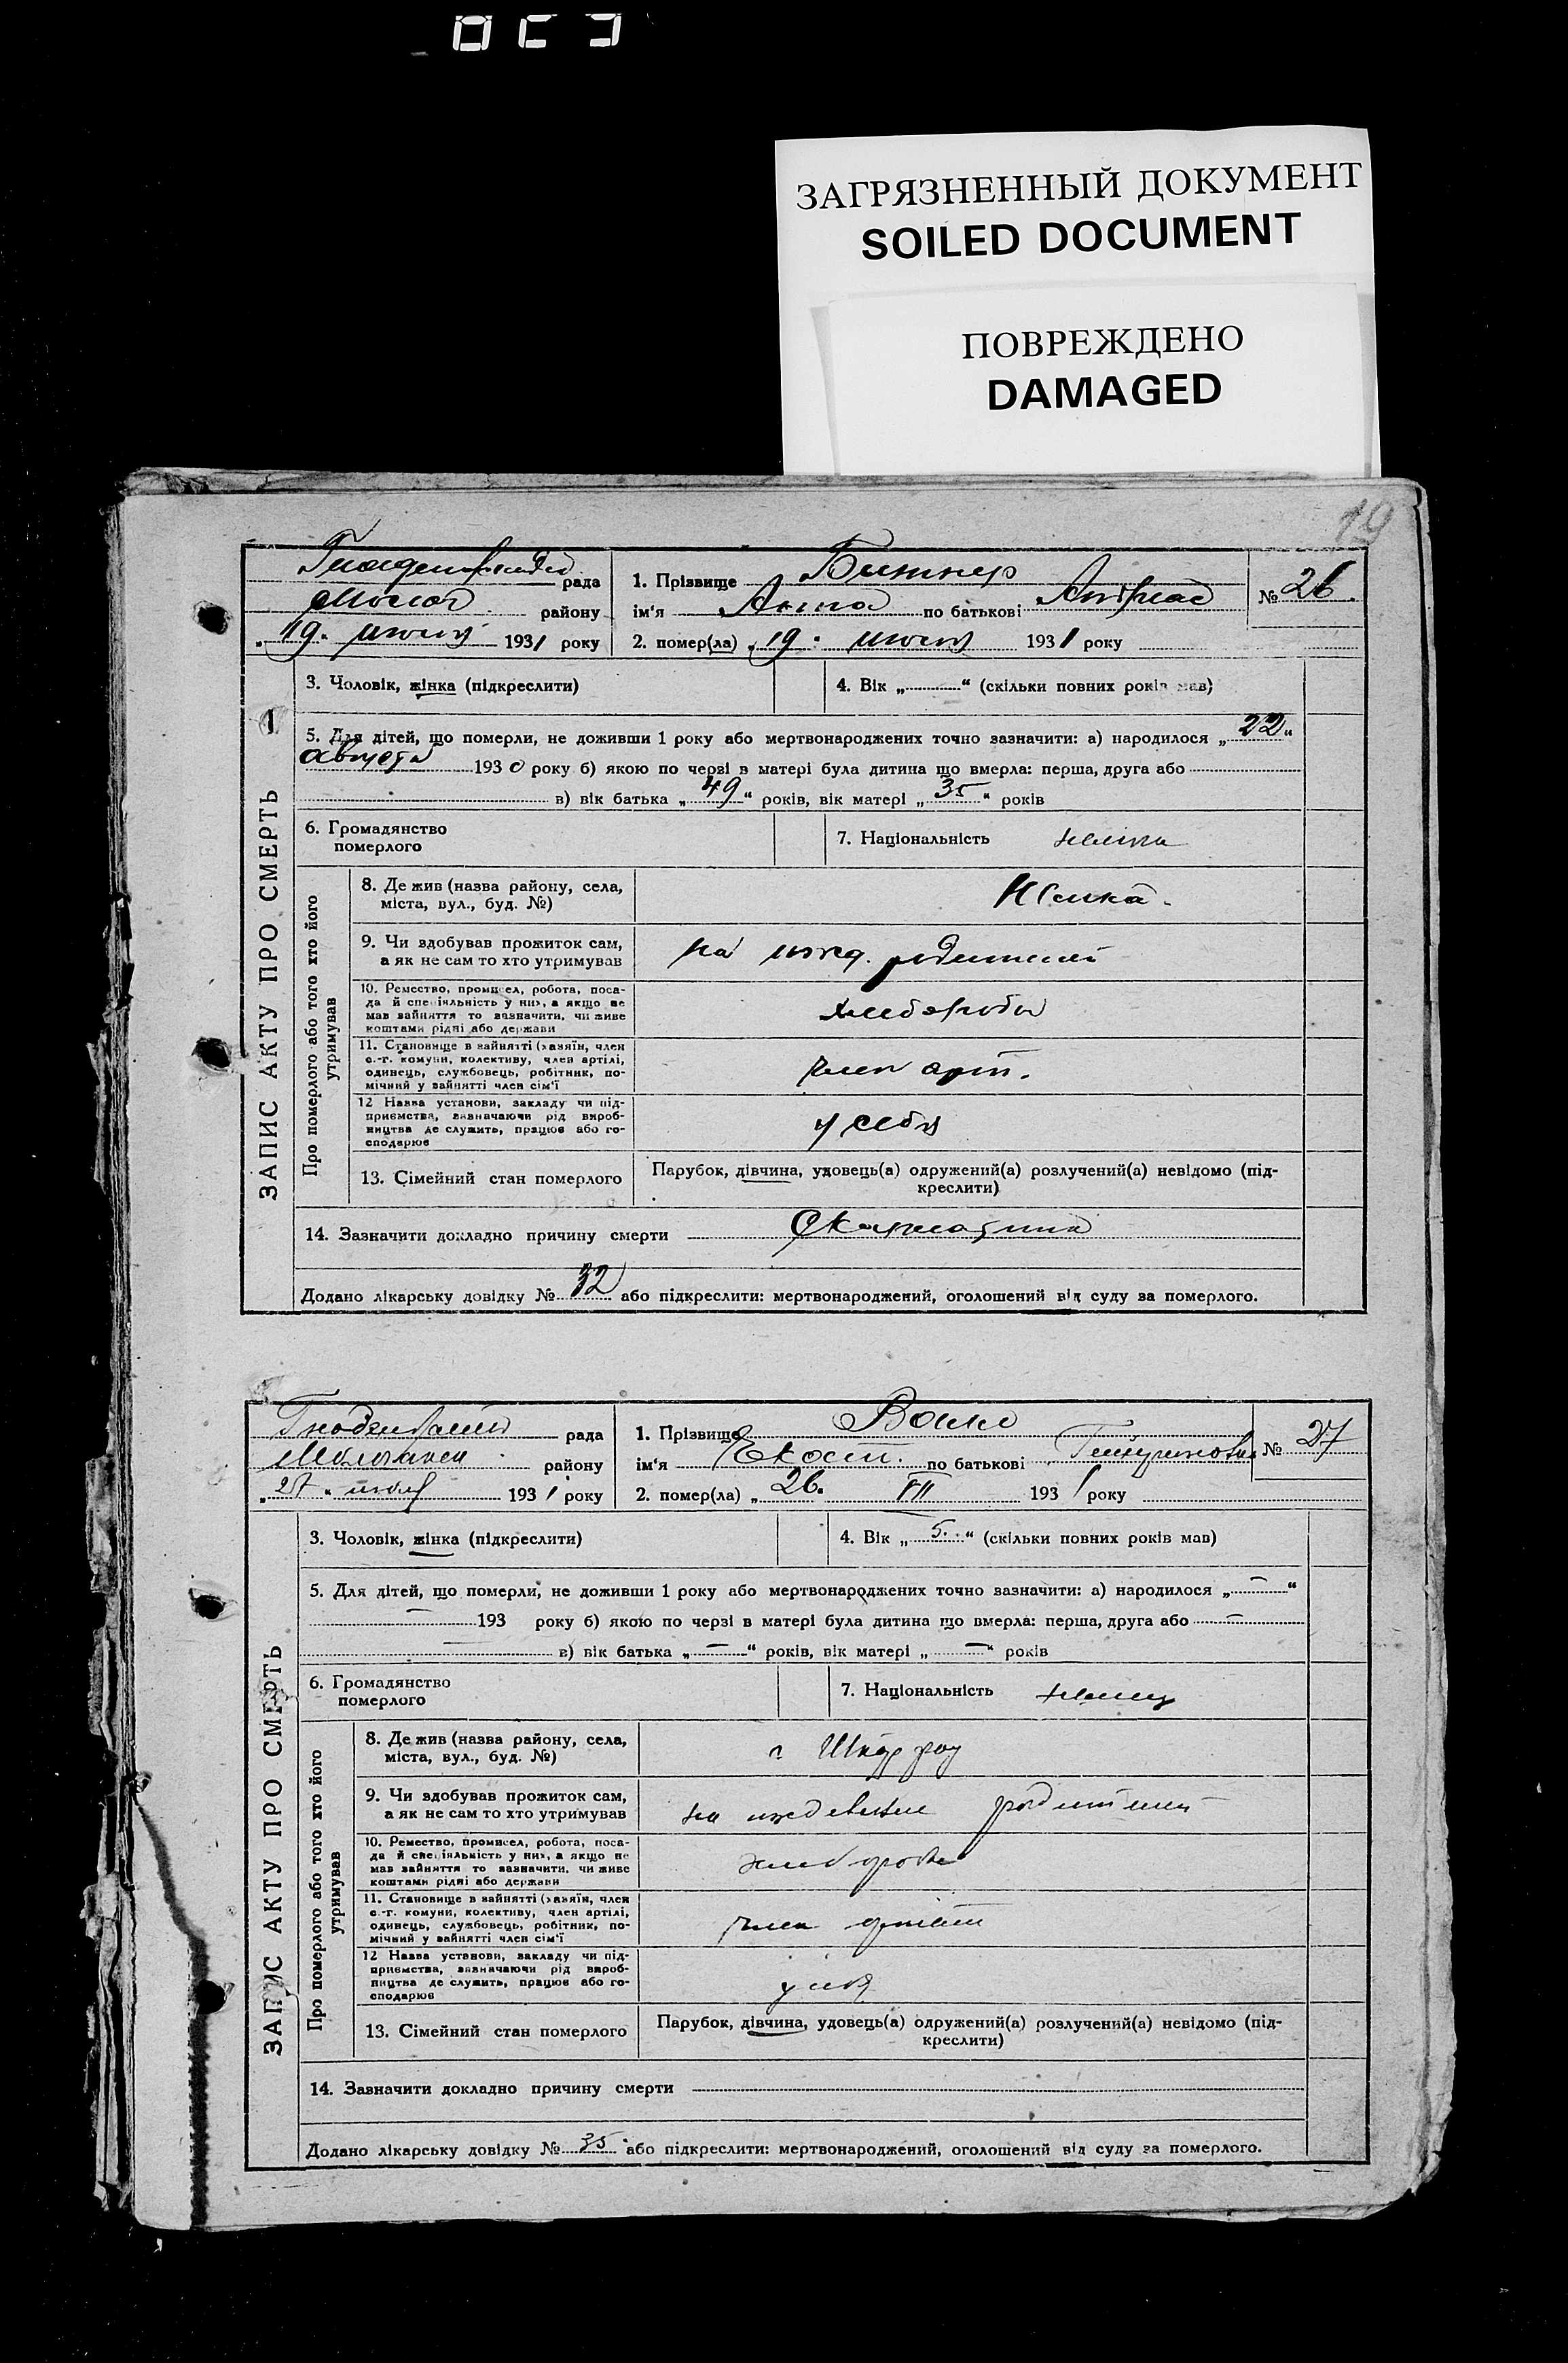 ЗАГРЯЗНЕННЫЙ ДОКУМЕНТ
SOILED DOCUMENT
ПОВРЕЖДЕНО
DAMAGED
19
рада
1. Прізвище Битнер
№ 26.
району
ім'я Анна по батькові
„19." июля 1931 року
2. помер(ла) „19." июля 1931 року
ЗАПИС АКТУ ПРО СМЕРТЬ
3. Чоловік, жінка (підкреслити)
4. Вік „ " (скільки повних років мав)
5. Для дітей, що померли, не доживши 1 року або мертвонароджених точно зазначити: а) народилося „22"
августа 1930 року б) якою по черзі в матері була дитина що вмерла: перша, друга або
в) вік батька „49" років, вік матері „35" років
6. Громадянство
померлого
7. Національність немка
Про померлого або того хто його
утримував
8. Де жив (назва району, села,
міста, вул., буд. №)
9. Чи здобував прожиток сам,
а як не сам то хто утримував
на ижд. родителей
10. Ремество, промисел, робота, поса-
да й спеціяльність у них, а якщо не
мав зайняття то зазначити, чи живе
коштами рідні або держави
хлебороба
11. Становище в зайнятті (хазяїн, член
с.-г. комуни, колективу, член артілі,
одинець, службовець, робітник, по-
мічний у зайнятті член сім'ї
член арт.
12 Назва установи, закладу чи під-
приємства, зазначаючи рід вироб-
ництва де служить, працює або го-
сподарює
у себя
13. Сімейний стан померлого
Парубок, дівчина, удовець(а) одружений(а) розлучений(а) невідомо (під-
креслити)
14. Зазначити докладно причину смерти Скарлатина
Додано лікарську довідку № 32 або підкреслити: мертвонароджений, оголошений від суду за померлого.
рада
1. Прізвище
№ 27
району
ім'я Екат. по батькові
„27" июля 1931 року
2. помер(ла) „26. VII 1931 року
ЗАПИС АКТУ ПРО СМЕРТЬ
3. Чоловік, жінка (підкреслити)
4. Вік „5." (скільки повних років мав)
5. Для дітей, що померли, не доживши 1 року або мертвонароджених точно зазначити: а) народилося „—"
— 193 року б) якою по черзі в матері була дитина що вмерла: перша, друга або —
— в) вік батька „—" років, вік матері „—" років
6. Громадянство
померлого
7. Національність немец
Про померлого або того хто його
утримував
8. Де жив (назва району, села,
міста, вул., буд. №)
9. Чи здобував прожиток сам,
а як не сам то хто утримував
на иждевении родителей
10. Ремество, промисел, робота, поса-
да й спеціяльність у них, а якщо не
мав зайняття то зазначити, чи живе
коштами рідні або держави
хлебороба
11. Становище в зайнятті (хазяїн, член
с.-г. комуни, колективу, член артілі,
одинець, службовець, робітник, по-
мічний у зайнятті член сім'ї
член артели
12 Назва установи, закладу чи під-
приємства, зазначаючи рід вироб-
ництва де служить, працює або го-
сподарює
у себя
13. Сімейний стан померлого
Парубок, дівчина, удовець(а) одружений(а) розлучений(а) невідомо (під-
креслити)
14. Зазначити докладно причину смерти
Додано лікарську довідку № 35 або підкреслити: мертвонароджений, оголошений від суду за померлого.